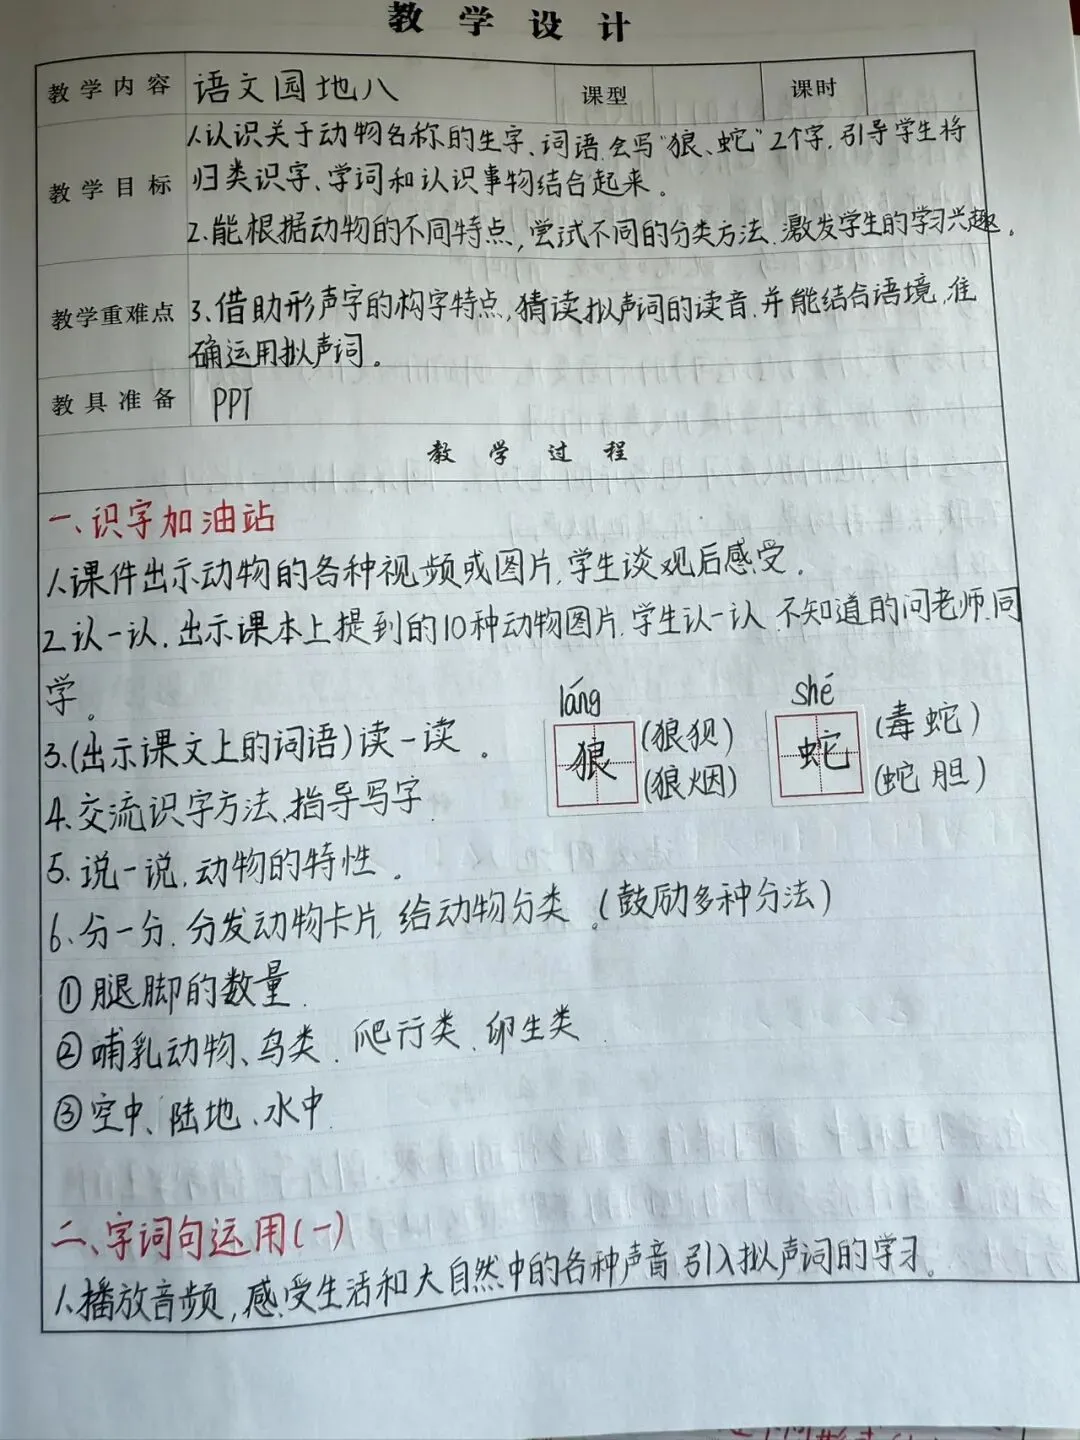 教学设计
教学内容 语文园地八 课型 课时
教学目标
1.认识关于动物名称的生字、词语.会写"狼、蛇"2个字.引导学生将
归类识字、学词和认识事物结合起来。
2.能根据动物的不同特点,尝试不同的分类方法.激发学生的学习兴趣。
教学重难点
3.借助形声字的构字特点,猜读拟声词的读音.并能结合语境,准
确运用拟声词。
教具准备 PPT
教学过程
一、识字加油站
1.课件出示动物的各种视频或图片,学生谈观后感受.
2.认一认.出示课本上提到的10种动物图片.学生认一认 不知道的问老师.同
学。
3.(出示课文上的词语)读一读。
4.交流识字方法.指导写字
láng
狼
(狼狈)
(狼烟)
shé
蛇
(毒蛇)
(蛇胆)
5.说一说.动物的特性。
6.分一分.分发动物卡片,给动物分类。(鼓励多种分法)
①腿脚的数量.
②哺乳动物、鸟类.爬行类.卵生类
③空中、陆地、水中.
二、字词句运用(一)
1.播放音频,感受生活和大自然中的各种声音.引入拟声词的学习。